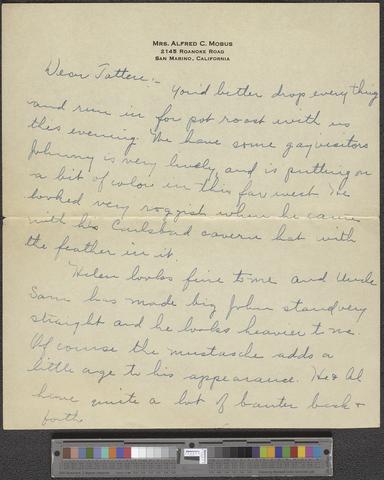 MRS. ALFRED C. MOBUS
2145 ROANOKE ROAD
SAN MARINO, CALIFORNIA
Dear :-
You'd better drop everything
and run in for pot roast with us
this evening. We have some gay visitors
Johnny is very lively, and is putting on
a bit of color in this far west. He
looked very roggish when he came
with his Carlsbad cavern hat with
the feather in it.
Helen looks fine to me and Uncle
Sam has made big John stand very
straight and he looks heavier to me.
Of course the mustache adds a
little age to his appearance. He & Al
have quite a lot of banter back &
forth